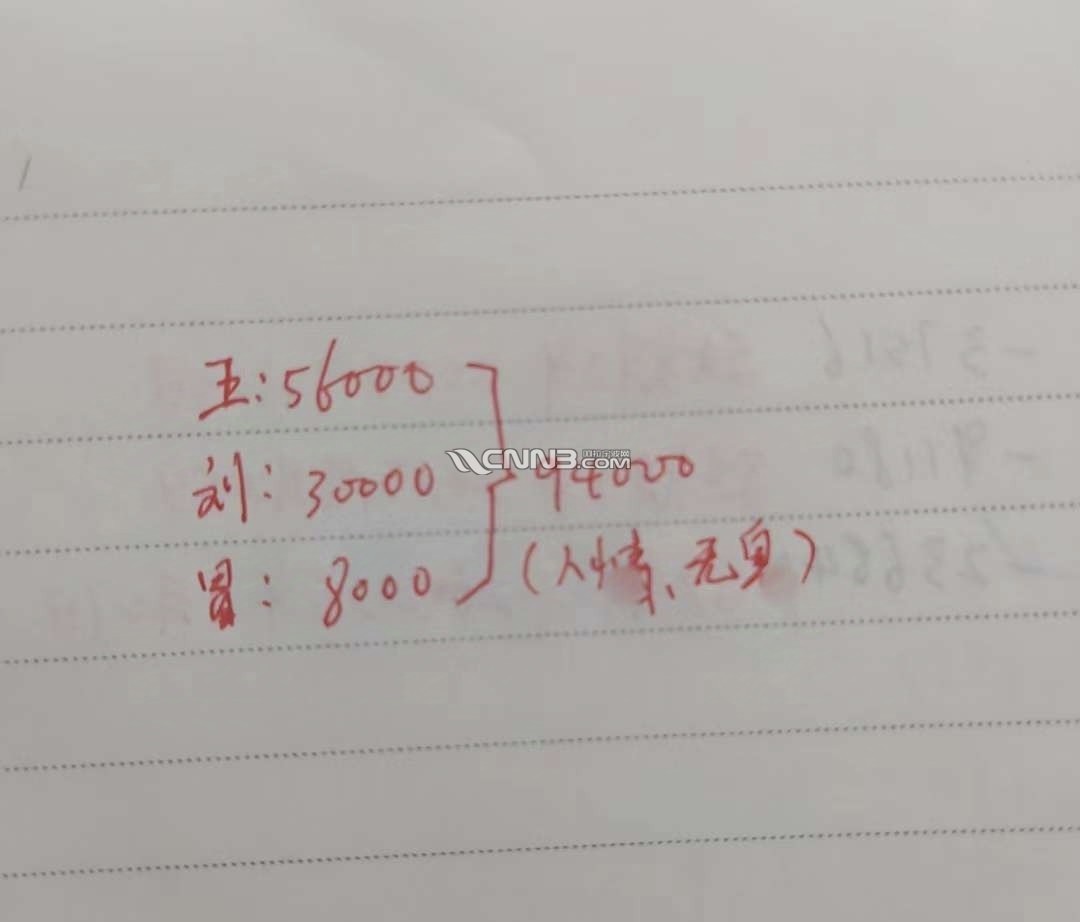 王:56000
刘:30000
94000
8000
(人情、无息)
CNNB.COM